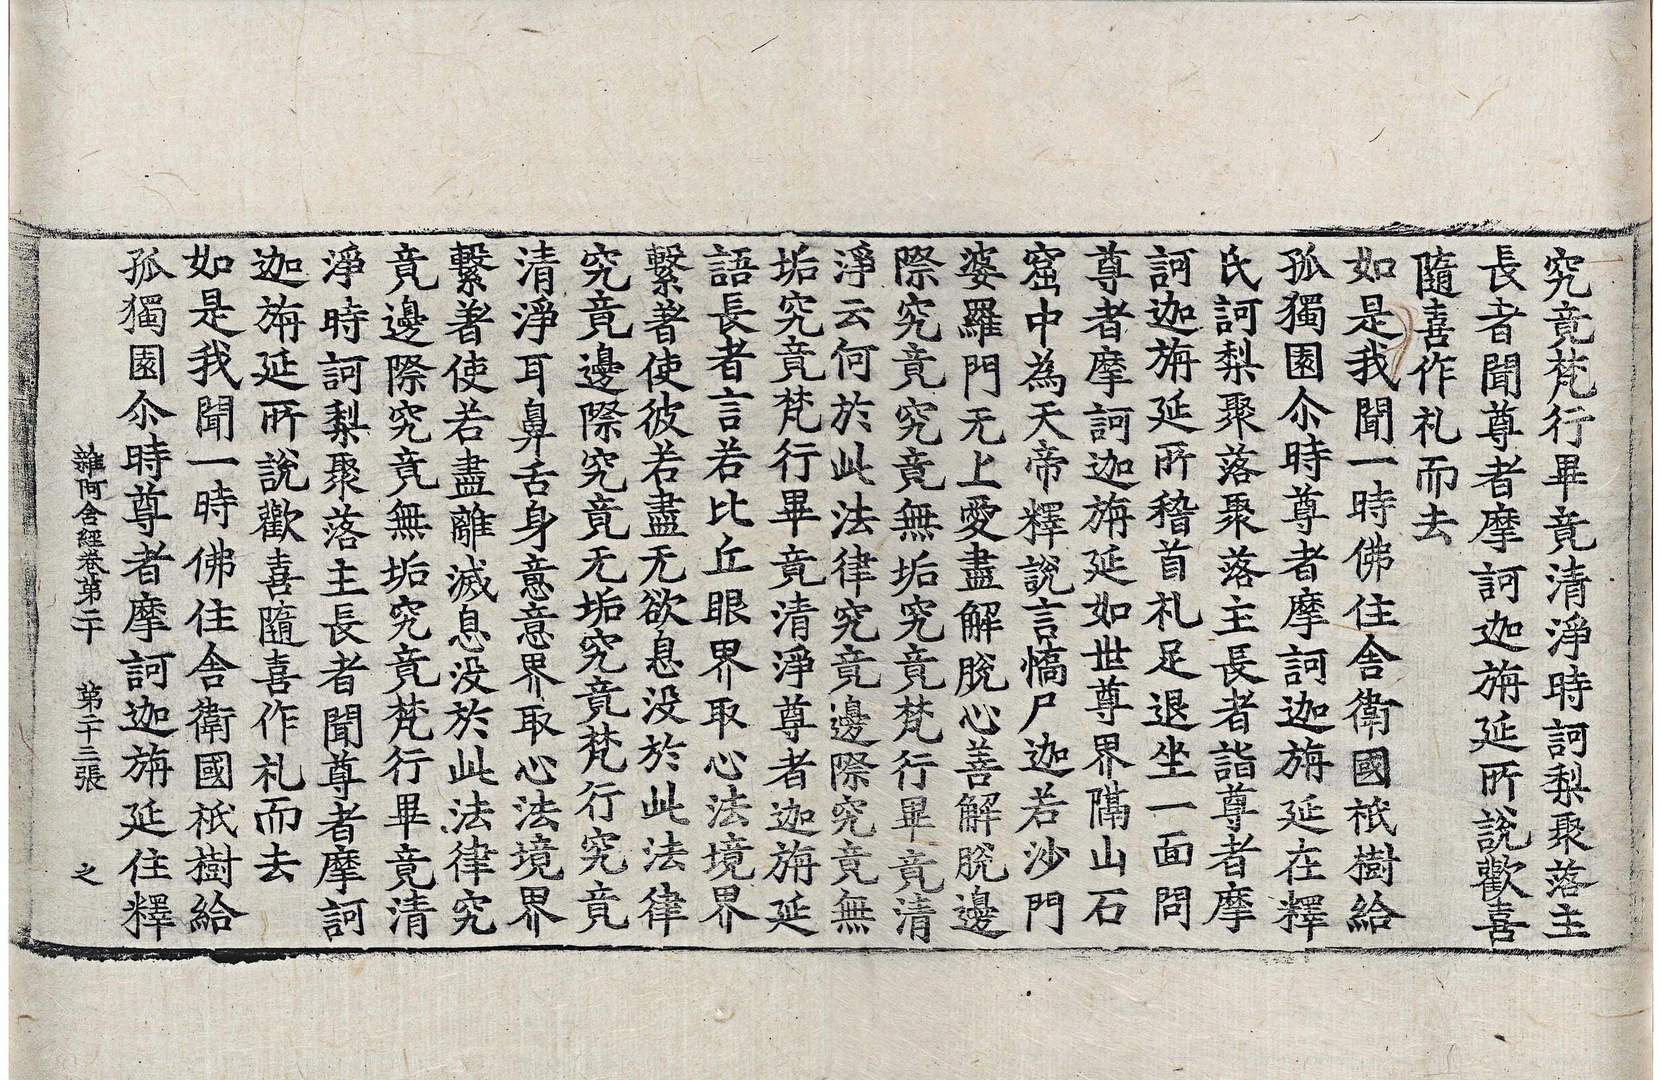 究竟梵行畢竟清淨時訶梨聚落主
長者聞尊者摩訶迦旃延所說歡喜
隨喜作礼而去
如是我聞一時佛住舍衛國祇樹給
孤獨園尒時尊者摩訶迦旃延在釋
氏訶梨聚落聚落主長者詣尊者摩
訶迦旃延所稽首礼足退坐一面問
尊者摩訶迦旃延如世尊界隔山石
窟中為天帝釋說言憍尸迦若沙門
婆羅門无上愛盡解脫心善解脫邊
際究竟究竟無垢究竟梵行畢竟清
淨云何於此法律究竟邊際究竟無
垢究竟梵行畢竟清淨尊者迦旃延
語長者言若比丘眼界取心法境界
繫著使彼若盡无欲息没於此法律
究竟邊際究竟无垢究竟梵行究竟
清淨耳鼻舌身意意界取心法境界
繫著使若盡離滅息没於此法律究
竟邊際究竟無垢究竟梵行畢竟清
淨時訶梨聚落主長者聞尊者摩訶
迦旃延所說歡喜隨喜作礼而去
如是我聞一時佛住舍衛國祇樹給
孤獨園尒時尊者摩訶迦旃延住釋
雜阿含經卷第二十 第二十三張 之